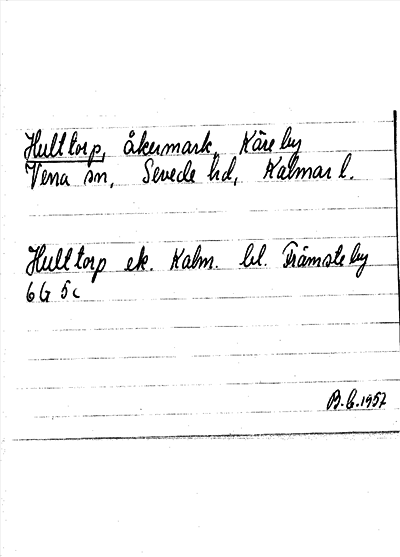 Hulltorp, åkermark, Käreby
Vena sn, Sevede hd, Kalmar l.
Hulltorp ek. Kalm. bl. Främsteby
6G 5c
B.G. 1957